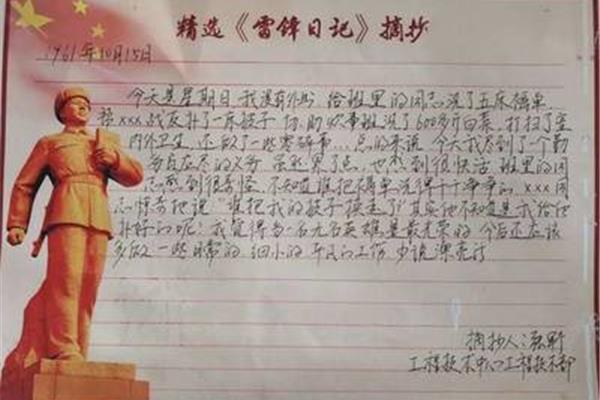 精选《雷锋日记》摘抄
1961年10月15日
今天是星期日,我没有外出,给班里的同志洗了五床褥单,
帮xxx战友补了一床被子,协助炊事班洗了600多斤白菜,打扫了室
内外卫生,还做了一些零碎事…总的来说,今天我尽到了一个勤
务员应尽的义务,虽然累了点,也感到很快活,班里的同
志感到很奇怪,不知道谁把褥单洗得干干净净的,xxx同
志惊奇地说"谁把我的被子换走了"其实他不知道是我给他
补好的呢!我觉得当一名无名英雄是最光荣的,今后还应该
多做一些日常的,细小的,平凡的工作,少说漂亮话
摘抄人:
工程技术中心工程技术部